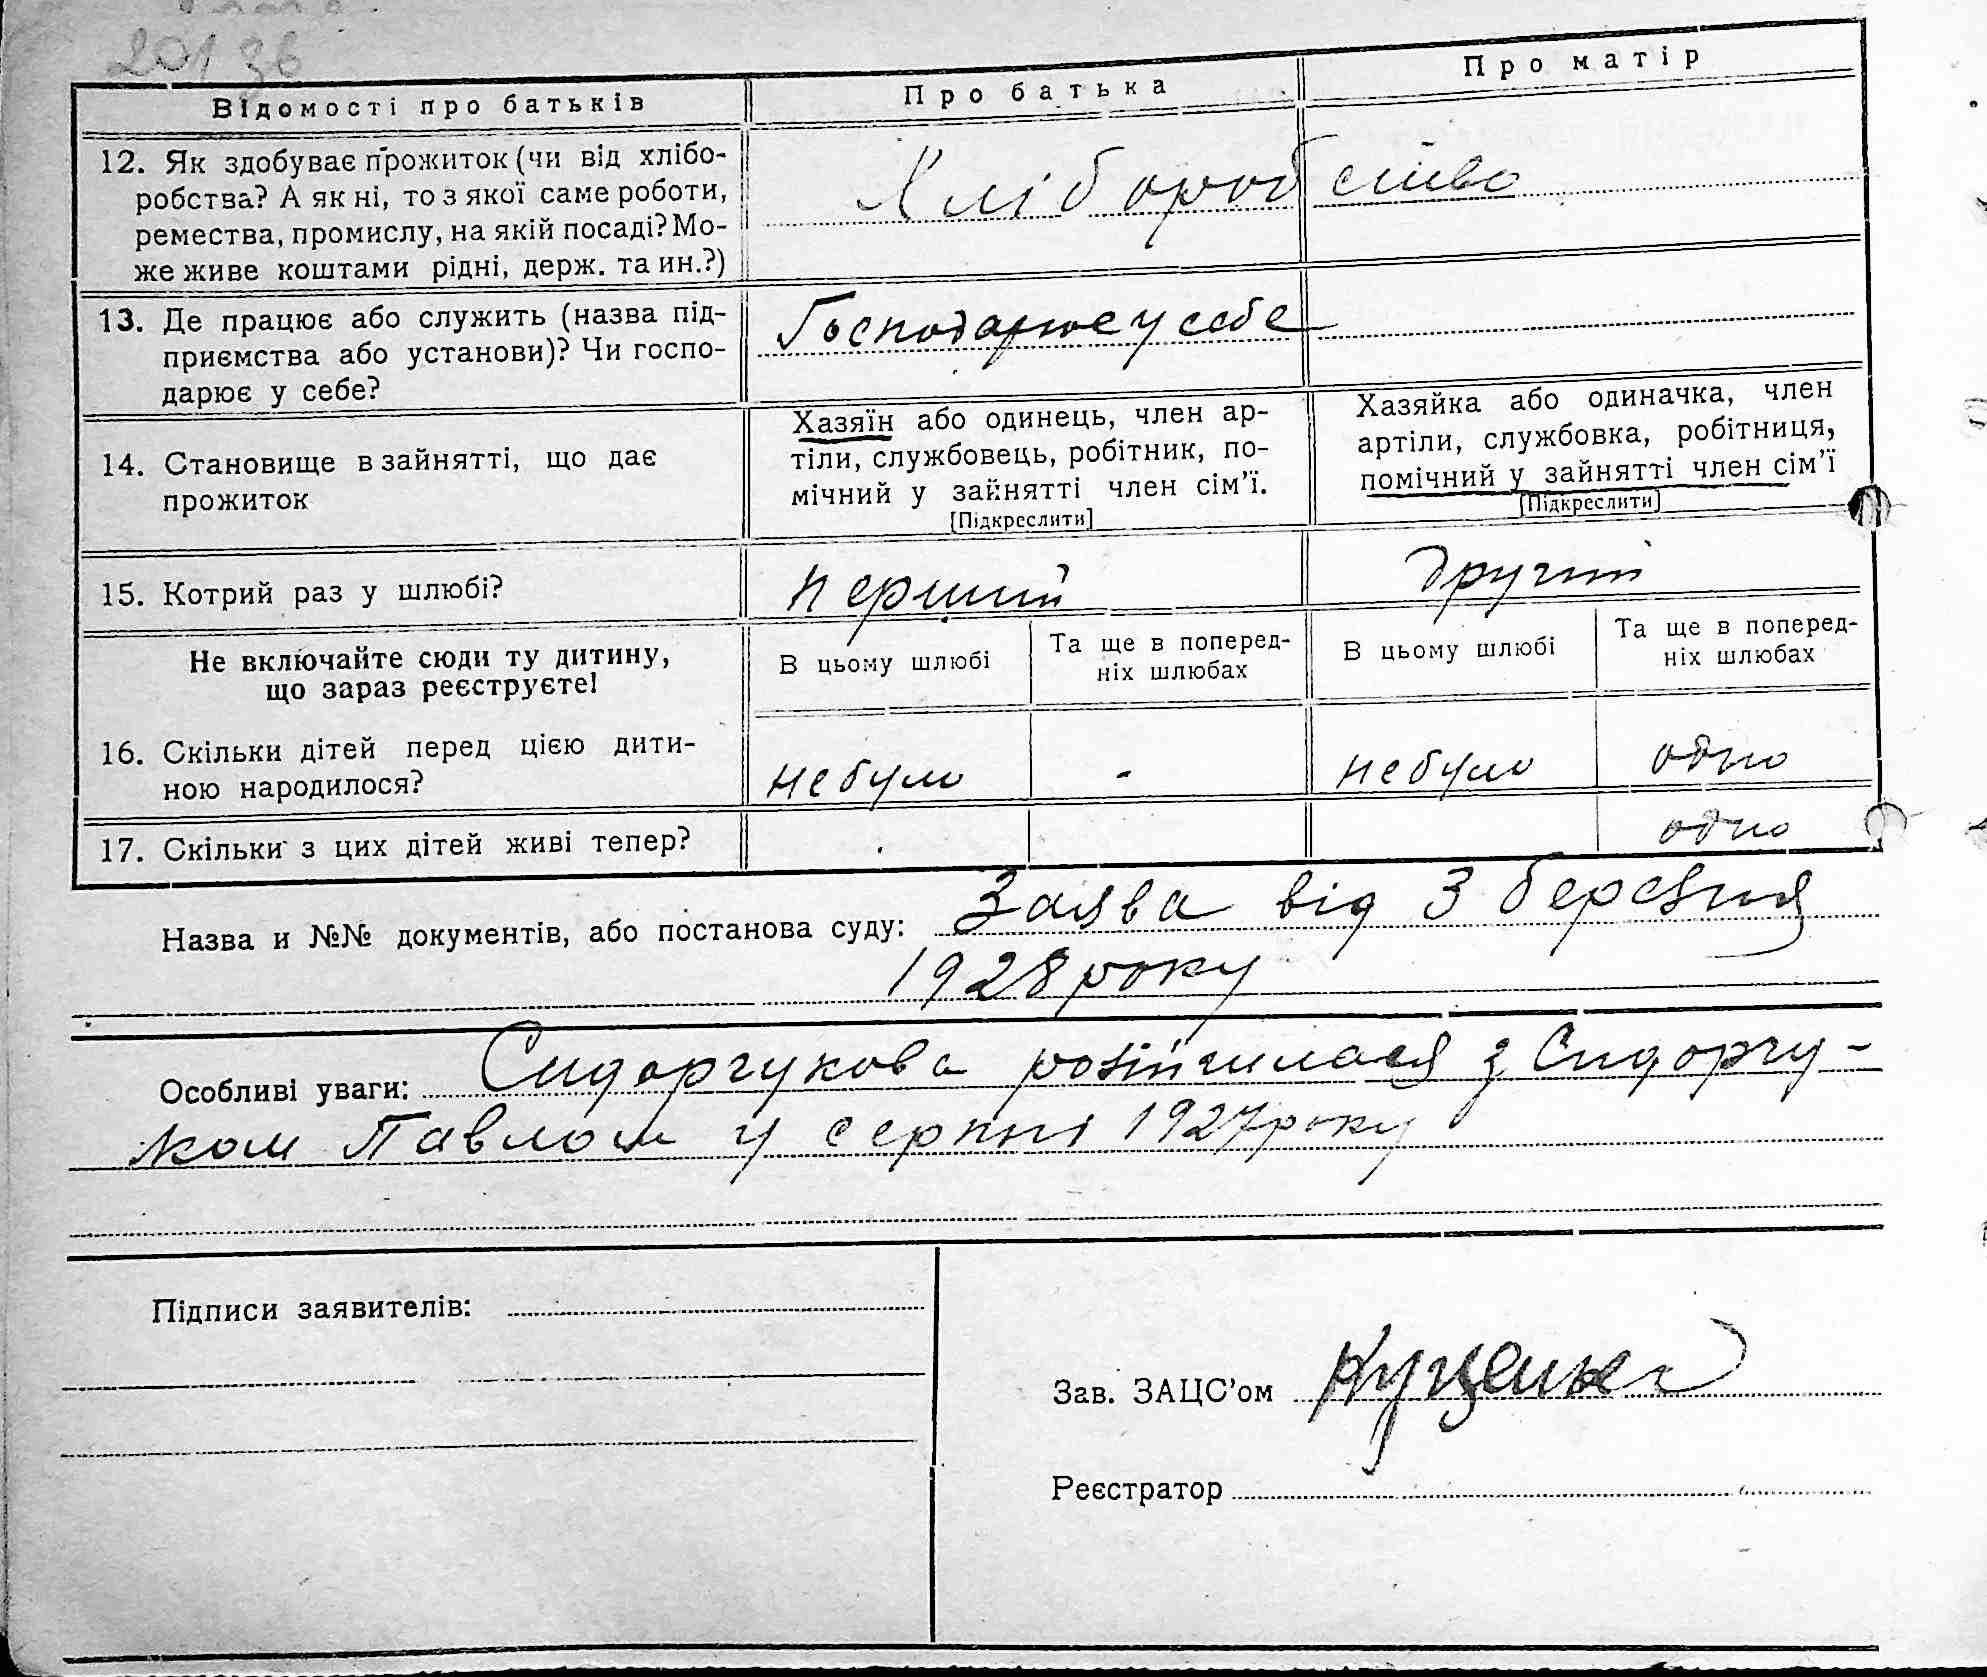 Відомості про батьків Про батька Про матір
12. Як здобуває прожиток (чи від хлібо-
робства? А як ні, то з якої саме роботи,
ремества, промислу, на якій посаді? Мо-
же живе коштами рідні, держ. та ин.?)
Хліборобство
13. Де працює або служить (назва під-
приємства або установи)? Чи госпо-
дарює у себе?
Господарює у себе
14. Становище в зайнятті, що дає
прожиток
Хазяїн або одинець, член ар-
тіли, службовець, робітник, по-
мічний у зайнятті член сім’ї.
[Підкреслити]
Хазяйка або одиначка, член
артіли, службовка, робітниця,
помічний у зайнятті член сім’ї
[Підкреслити]
15. Котрий раз у шлюбі? перший другий
Не включайте сюди ту дитину,
що зараз реєструєте!
В цьому шлюбі
Та ще в поперед-
ніх шлюбах
В цьому шлюбі
Та ще в поперед-
ніх шлюбах
16. Скільки дітей перед цією дити-
ною народилося?
небуло - небуло одно
17. Скільки з цих дітей живі тепер? одно
Назва и №№ документів, або постанова суду: Заява від 3 березня
1928 року
Особливі уваги: Сидорчукова розійшлася з Сидорчу-
ком Павлом у серпні 1927 року
Підписи заявителів:
Зав. ЗАЦС’ом Куценко
Реєстратор